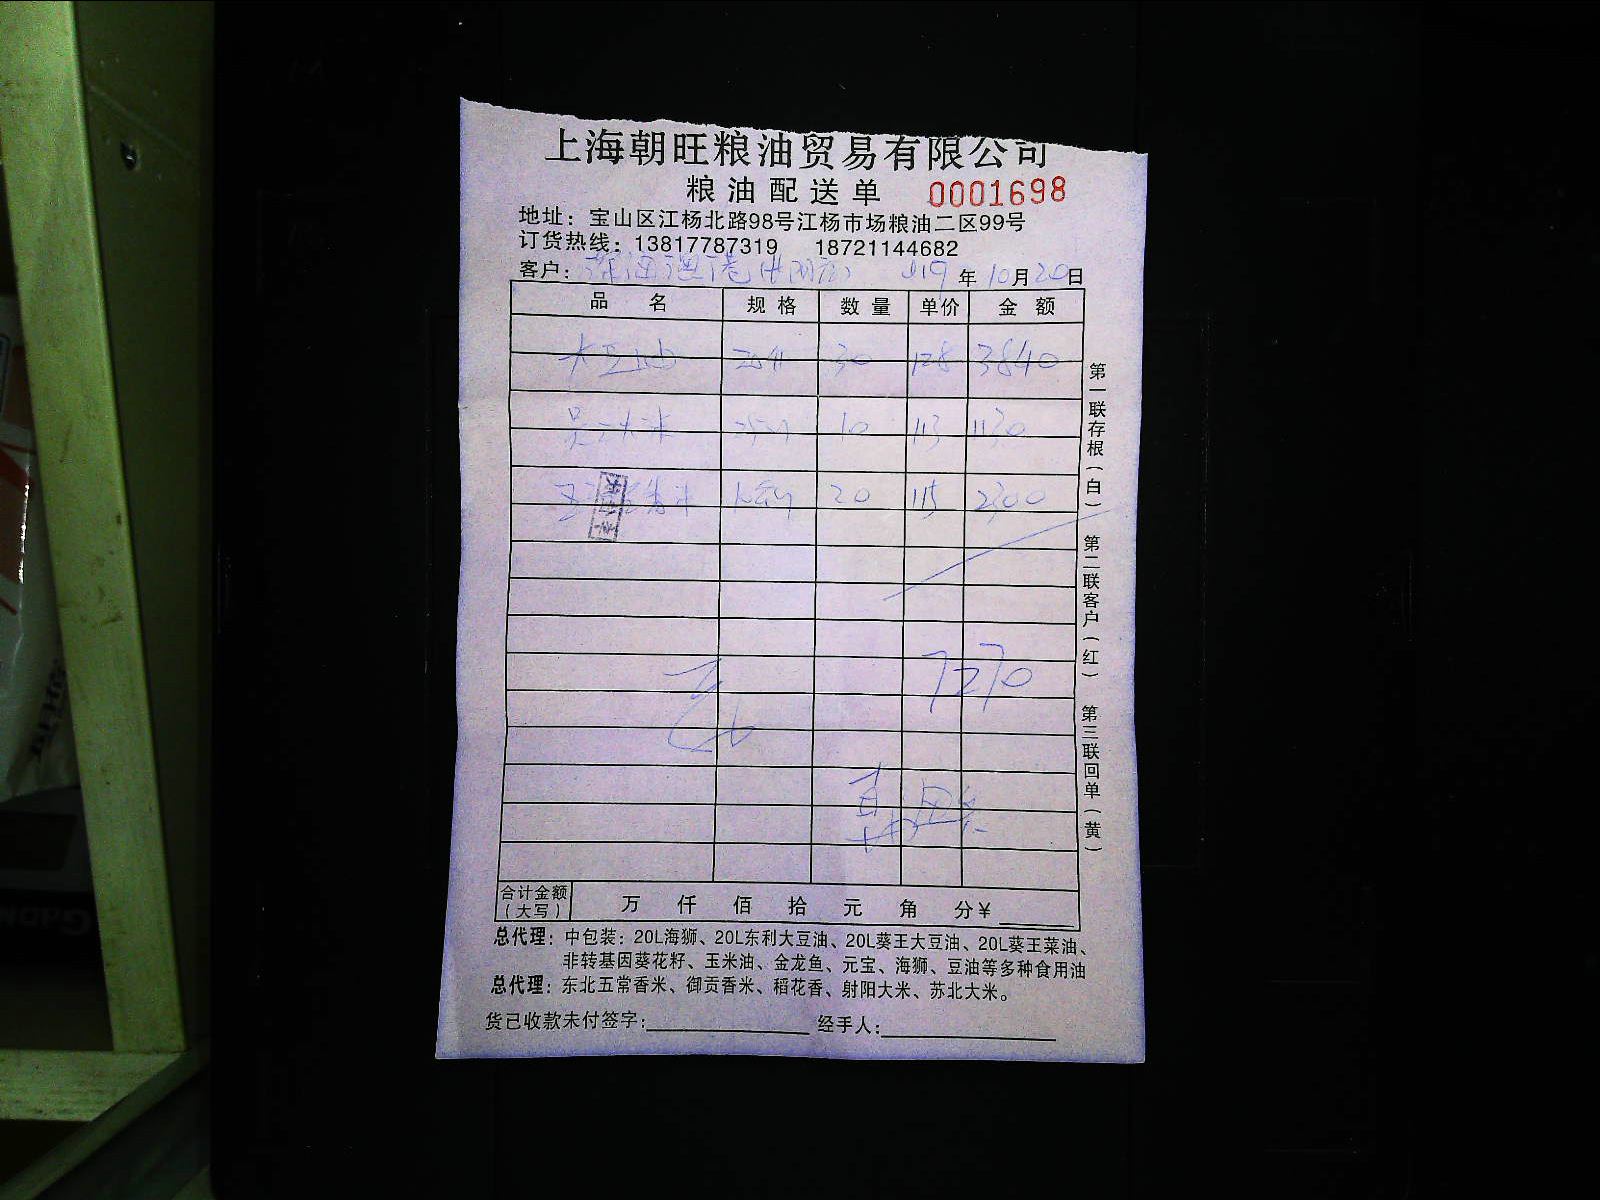 上海朝旺粮油贸易有限公司
粮油配送单 0001698
地址：宝山区江杨北路98号江杨市场粮油二区99号
订货热线：13817787319 18721144682
客户： 年10月20日
品名 规格 数量 单价 金额
大豆油 30 128 3840
10 113 1130
20 115 2300
7270
合计金额（大写） 万 仟 佰 拾 元 角 分￥
总代理：中包装：20L海狮、20L东利大豆油、20L葵王大豆油、20L葵王菜油、
非转基因葵花籽、玉米油、金龙鱼、元宝、海狮、豆油等多种食用油
总代理：东北五常香米、御贡香米、稻花香、射阳大米、苏北大米。
货已收款未付签字： 经手人：
第一联存根（白） 第二联客户（红） 第三联回单（黄）